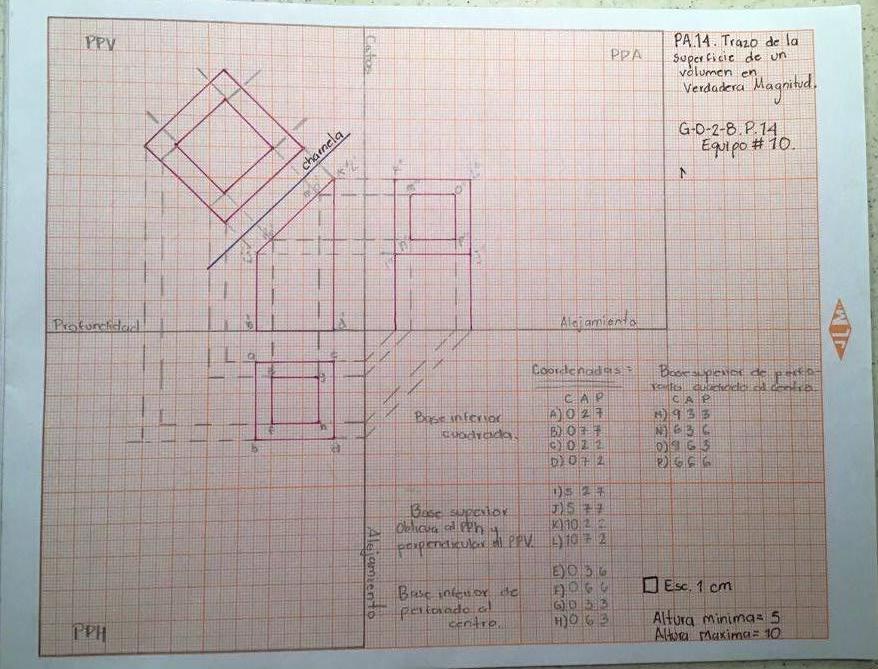 PPV
Cotas
PPA
PA.14. Trazo de la
superficie de un
volumen en
Verdadera Magnitud.
G-D-2-B. P.14
Equipo # 10.
charnela
Profundidad
Alejamiento
a
c
b
d
h
Coordenadas:
C A P
A) 0 2 7
B) 0 7 7
C) 0 2 2
D) 0 7 2
Base superior de perfo-
rado cuadrado al centro
C A P
M) 9 3 3
N) 6 3 6
O) 9 6 3
P) 6 6 6
Base inferior
cuadrada.
I) 5 2 7
J) 5 7 7
K) 10 2 2
L) 10 7 2
Base superior
Oblicua al PPh y
perpendicular al PPV.
Alejamiento
E) 0 3 6
F) 0 6 6
G) 0 3 3
H) 0 6 3
Base inferior de
perforado al
centro.
Esc. 1 cm
Altura minima= 5
Altura Maxima= 10
PPH
JLM